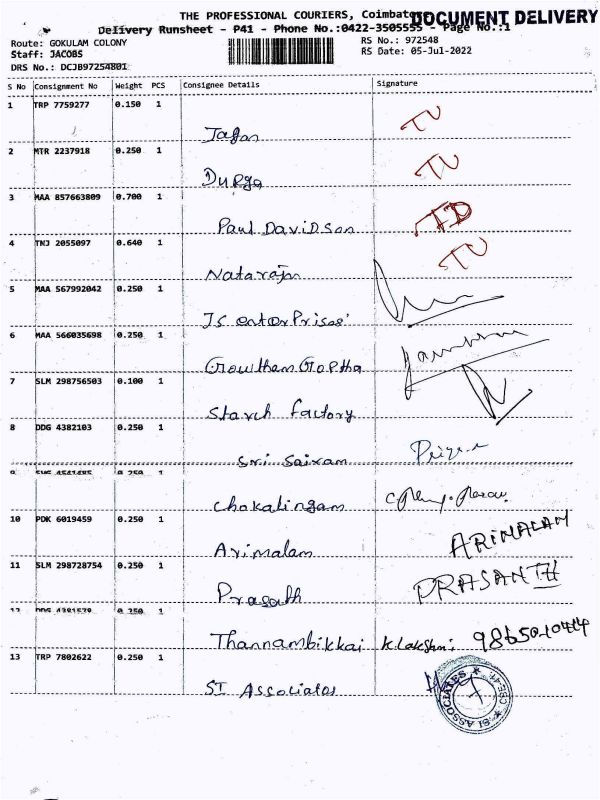 THE PROFESSIONAL COURIERS, Coimbatore
DOCUMENT DELIVERY
Delivery Runsheet - P41 - Phone No.:0422-3505555 - Page No.:1
Route: GOKULAM COLONY RS No.: 972548
Staff: JACOBS RS Date: 05-Jul-2022
DRS No.: DCJB97254801
S No Consignment No Weight PCS Consignee Details Signature
1 TRP 7759277 0.150 1
Jagan
2 MTR 2237918 0.250 1
Durga
3 MAA 857663809 0.700 1
Paul Davidson
4 TNJ 2055097 0.640 1
Natarajan
5 MAA 567992042 0.250 1
JS enterPrises
6 MAA 566035698 0.250 1
Gowtham Goptha
7 SLM 298756503 0.100 1
Starch factory
8 DDG 4382103 0.250 1
Sri Sairam
9 0.250 1
Chokalingam
10 PDK 6019459 0.250 1
Arimalam ARIMALAM
11 SLM 298728754 0.250 1
Prasath PRASANTH
12 0.250 1
Thannambikkai K.Lakshmi
13 TRP 7802622 0.250 1
SI Associates
SI ASSOCIATES